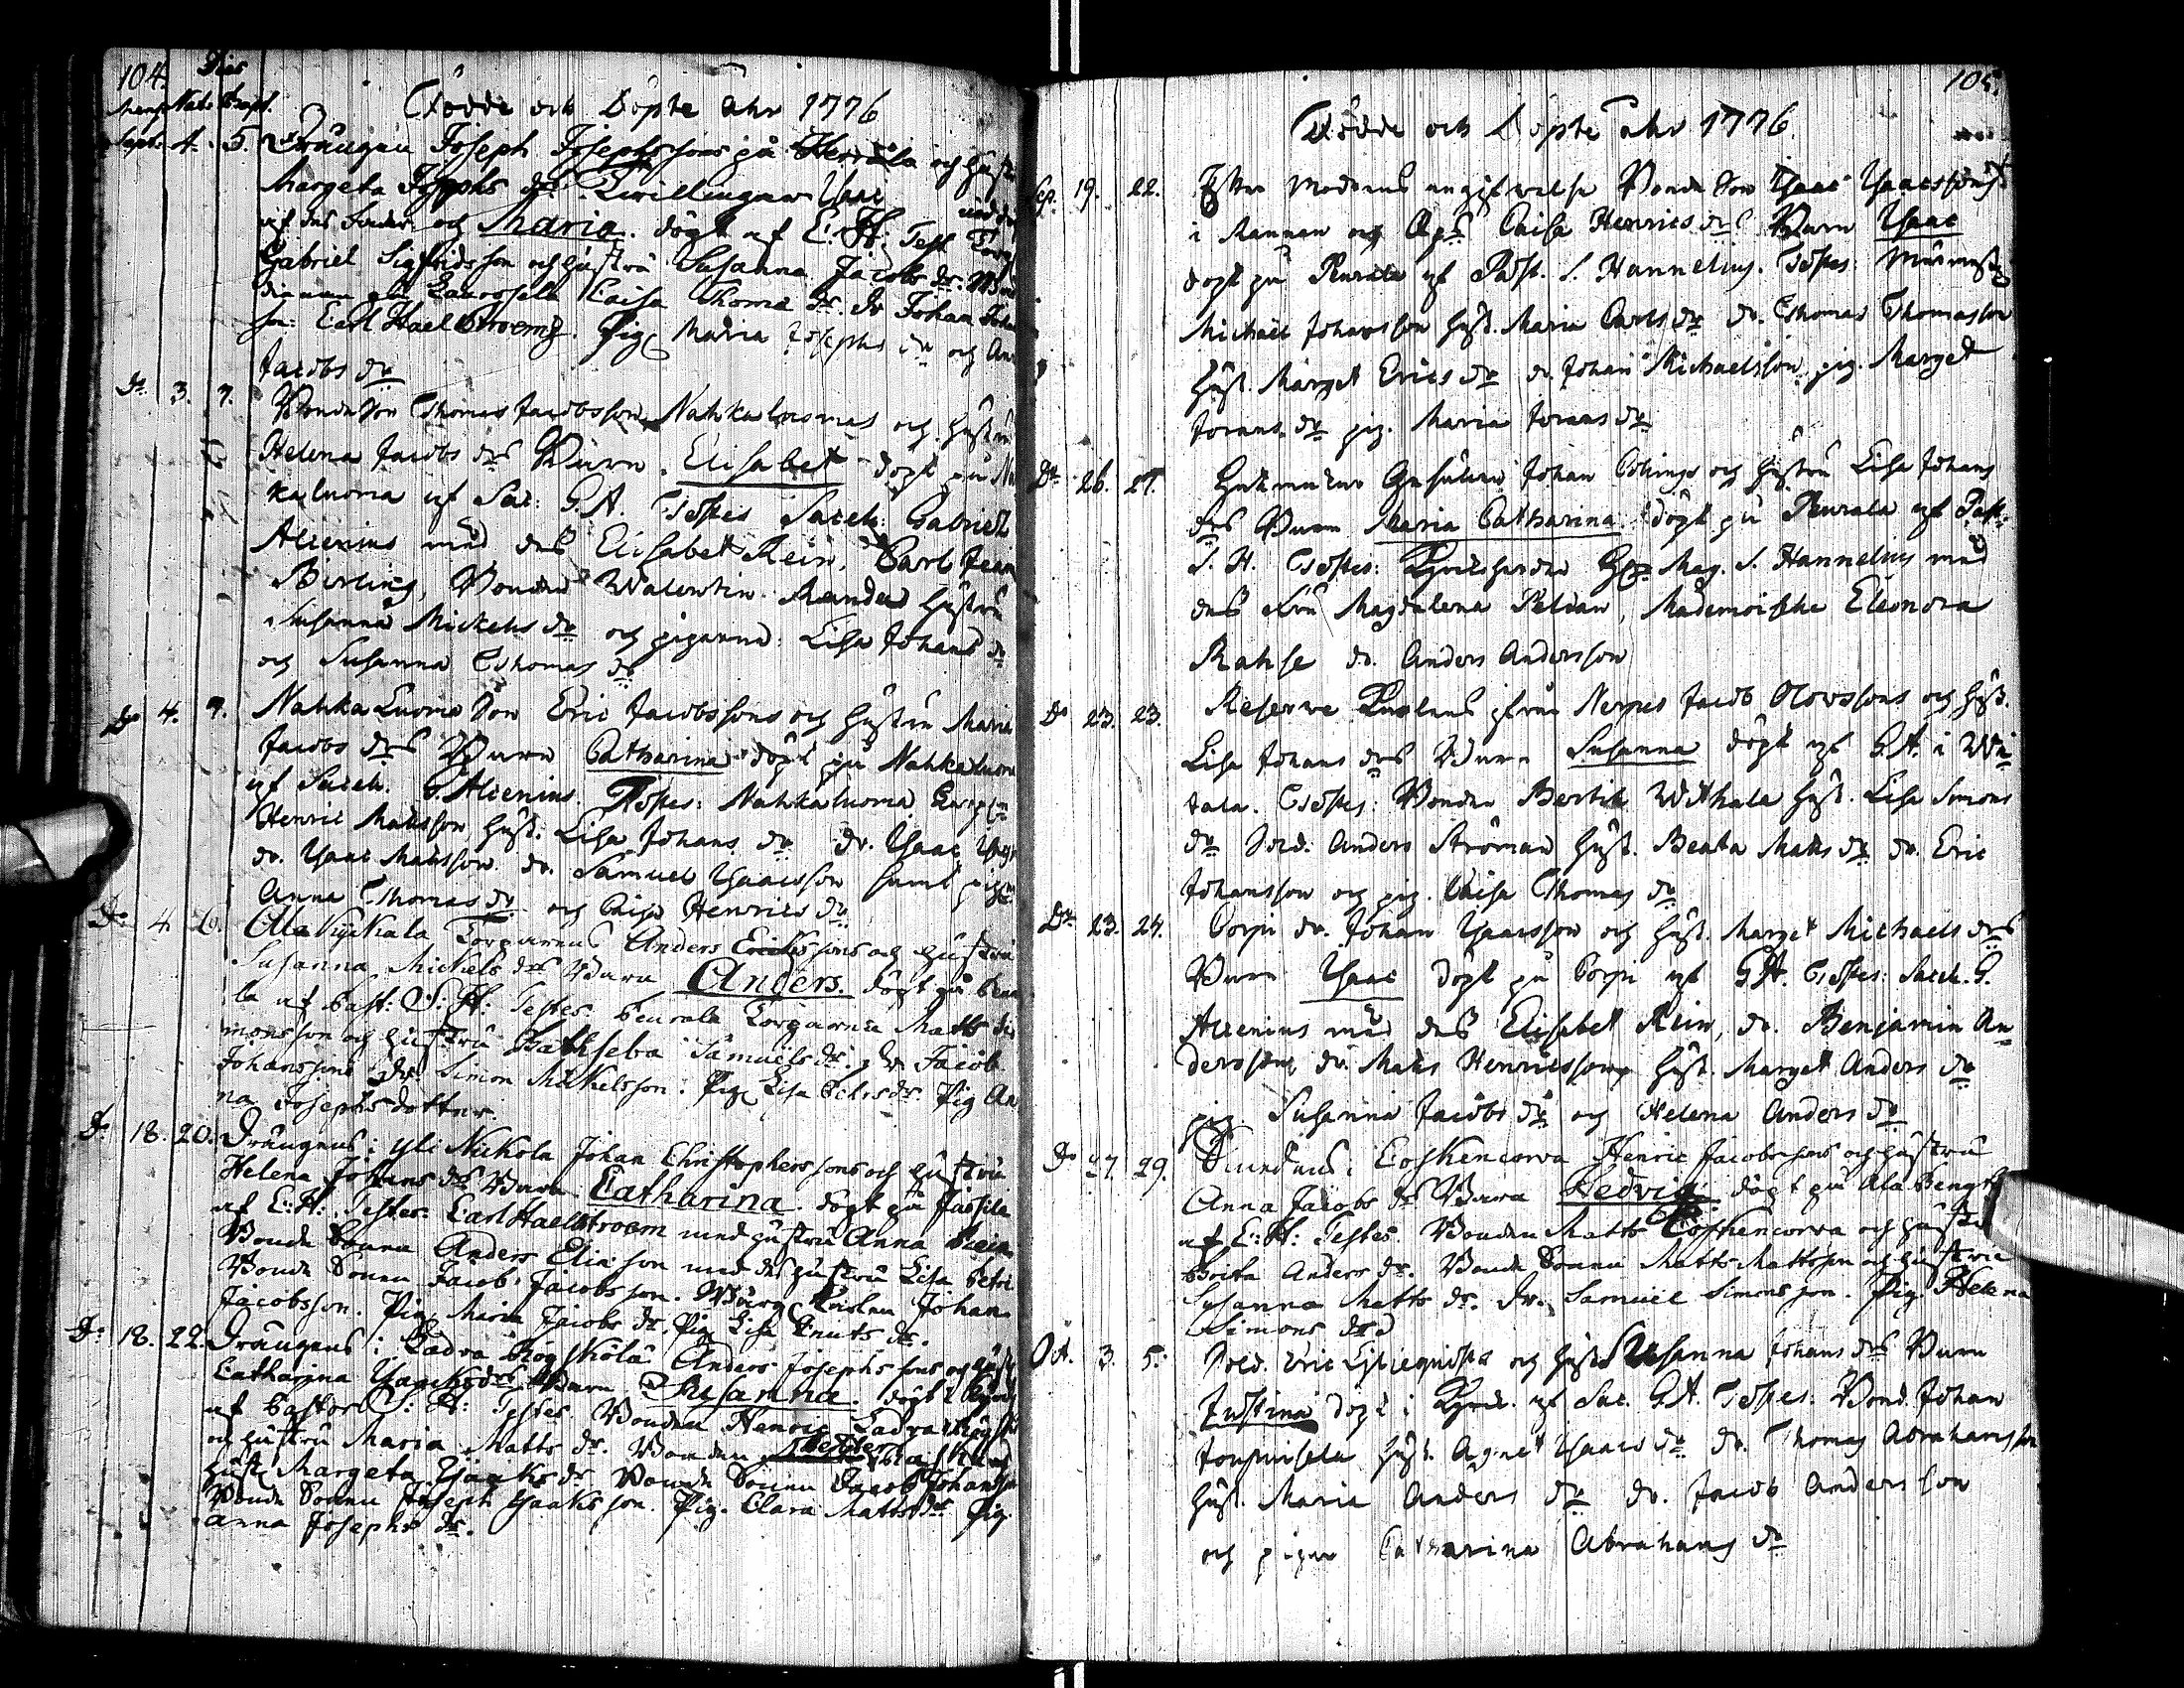 104. Dies
Mens. Nat. Bapt.
Födde och Döpte åhr 1776
Sept. 4. 5. Drängen Joseph Josephssons på Herrala och Hustr
Margeta Josephs dr. Twillingar Isaac
och Maria. döpt af E: H: Test
Gabriel Sigfridsson och hustru Susanna Jacobs dr.
Caisa Thomæ dr. Dr Johan
Carl Haelstroem. Pig. Maria Josephs dr och
Jacobs dr
Do 3. 7. Bonde Son Thomas Jacobsson Nahkaluomas och hustru
Helena Jacobs drs Barn Elisabet döpt på
kaluoma af Sac: G. A. Testes Sacell: Gabriel
Alcenius med des Elisabet Rein, Carl
Birling, Bonden Walentin Mandus hustru
Susanna Mickels dr och pigorna Lisa Johans dr
och Susanna Thomas dr
Do 4. 7. Nahkaluoma Son Eric Jacobssons och hustru Maria
Jacobs drs Barn Catharina döpt på Nahkaluoma
af Sacell. G. Alcenius. Testes: Nahkaluoma
Henric Matsson hust. Lisa Johans dr dr. Isaac
dr. Isaac Matsson dr. Samuel Isaacsson samt pigo
Anna Thomas dr och Caisa Henrics dr
Do 4. 6. Ala Torparens Anders Erikssons och hustru
Susanna Mickels drs Barn Anders. döpt på
la af Past: S: H: Testes. Peurala Torparen Matts Si
monsson och hustru Bathseba Samuels dr. Dr Jacob
Johansson Dr. Simon Mickelsson. Pig. Lisa Pehrs dr. Pig An
na Josephsdotter.
Do 18. 20. Drängens i Yli Nickola Johan Christopherssons och hustru
Helena Johans drs Barn Catharina. döpt på Jussila
af E: H: Testes: Carl Haelstroem med hustru Anna
Bonde Sonen Anders Eliæ son med des hustru Lisa Petri
Bonde Sonen Jacob Jacobsson. Johan
Jacobsson. Pig. Maria Jacobs dr. Pig Lisa Knuts dr.
Do 18. 22. Drängens i Ladva Anders Josephssons och hust
Catharina Isaacks drs Barn Susanna. döpt i
af Pastor S: H: Testes. Bonden Henric Ladva
och hustru Maria Matts dr. Bonden
hust. Margeta Isaaks dr Bonde Sonen Jacob Johansson
Bonde Sonen Joseph Isaaksson. Pig. Clara Matts dr Pig
Anna Josephs dr.
105.
Födde och Döpte åhr 1776
Sep. 19. 22. Efter Modrens angifwelse Bonde Son Isaac Isaacssons
i Mannan och Caisa Henrics drs Barn Isaac
döpt på Peurala af Past. S. Hannelius. Testes:
Michaël Johansson hust. Maria Carls dr dr. Thomas Thomasson
hust. Marget Erics dr dr. Johan Michaelsson pig. Marget
Joeans dr pig. Maria Joeans dr
Do 26. 27. Johan och hustru Lisa Johans
drs Barn Maria Catharina döpt på Peurala af Past.
S. H. Testes: Kyrckoherden Mag. S. Hannelius med
des Fru Magdalena Peldan, Mademoiselle Eleonora
Rahse dr. Anders Andersson
Do 23. 23. Reserve Karlens ifrån Nerpes Jacob Olowssons och hust.
Lisa Johans drs Barn Susanna döpt af G. A. i Wi
tala. Testes: Bonden Bertil Withala hust. Lisa Simons
dr Sold. Anders Ströman hust. Beata Mats dr dr. Eric
Johansson och pig. Caisa Thomas dr
Do 23. 24. Corpi dr. Johan Isaacsson och hust. Marget Michaels drs
Barn Isaac döpt på Corpi af G. A. Testes: Sacell. G.
Alcenius med des Elisabet Rein, dr. Benjamin An
dersson, dr. Mats Henricsson hust. Marget Anders dr
pig. Susanna Jacobs dr och Helena Anders dr
Do 27. 29. i Coskencorva Henric Jacobssons och hustru
Anna Jacobs drs Barn Hedvig döpt på Ala
af E: H: Testes. Bonden Matts Coskencorva och hustru
Brita Anders dr. Bonde Sonen Matts Mattsson och hustru
Susanna Matts dr. Dr. Samuel Simonsson. Pig Helena
Simons dr
Oct. 3. 5. Sold. Eric Liljequists och hust. Susanna Johans drs Barn
Justina döpt i Kyrck. af Sac. G. A. Testes: Bond. Johan
hust. Agnet Isaacs dr dr. Thomas Abrahamsson
hust. Maria Anders dr dr. Jacob Andersson
och pigan Catharina Abrahams dr